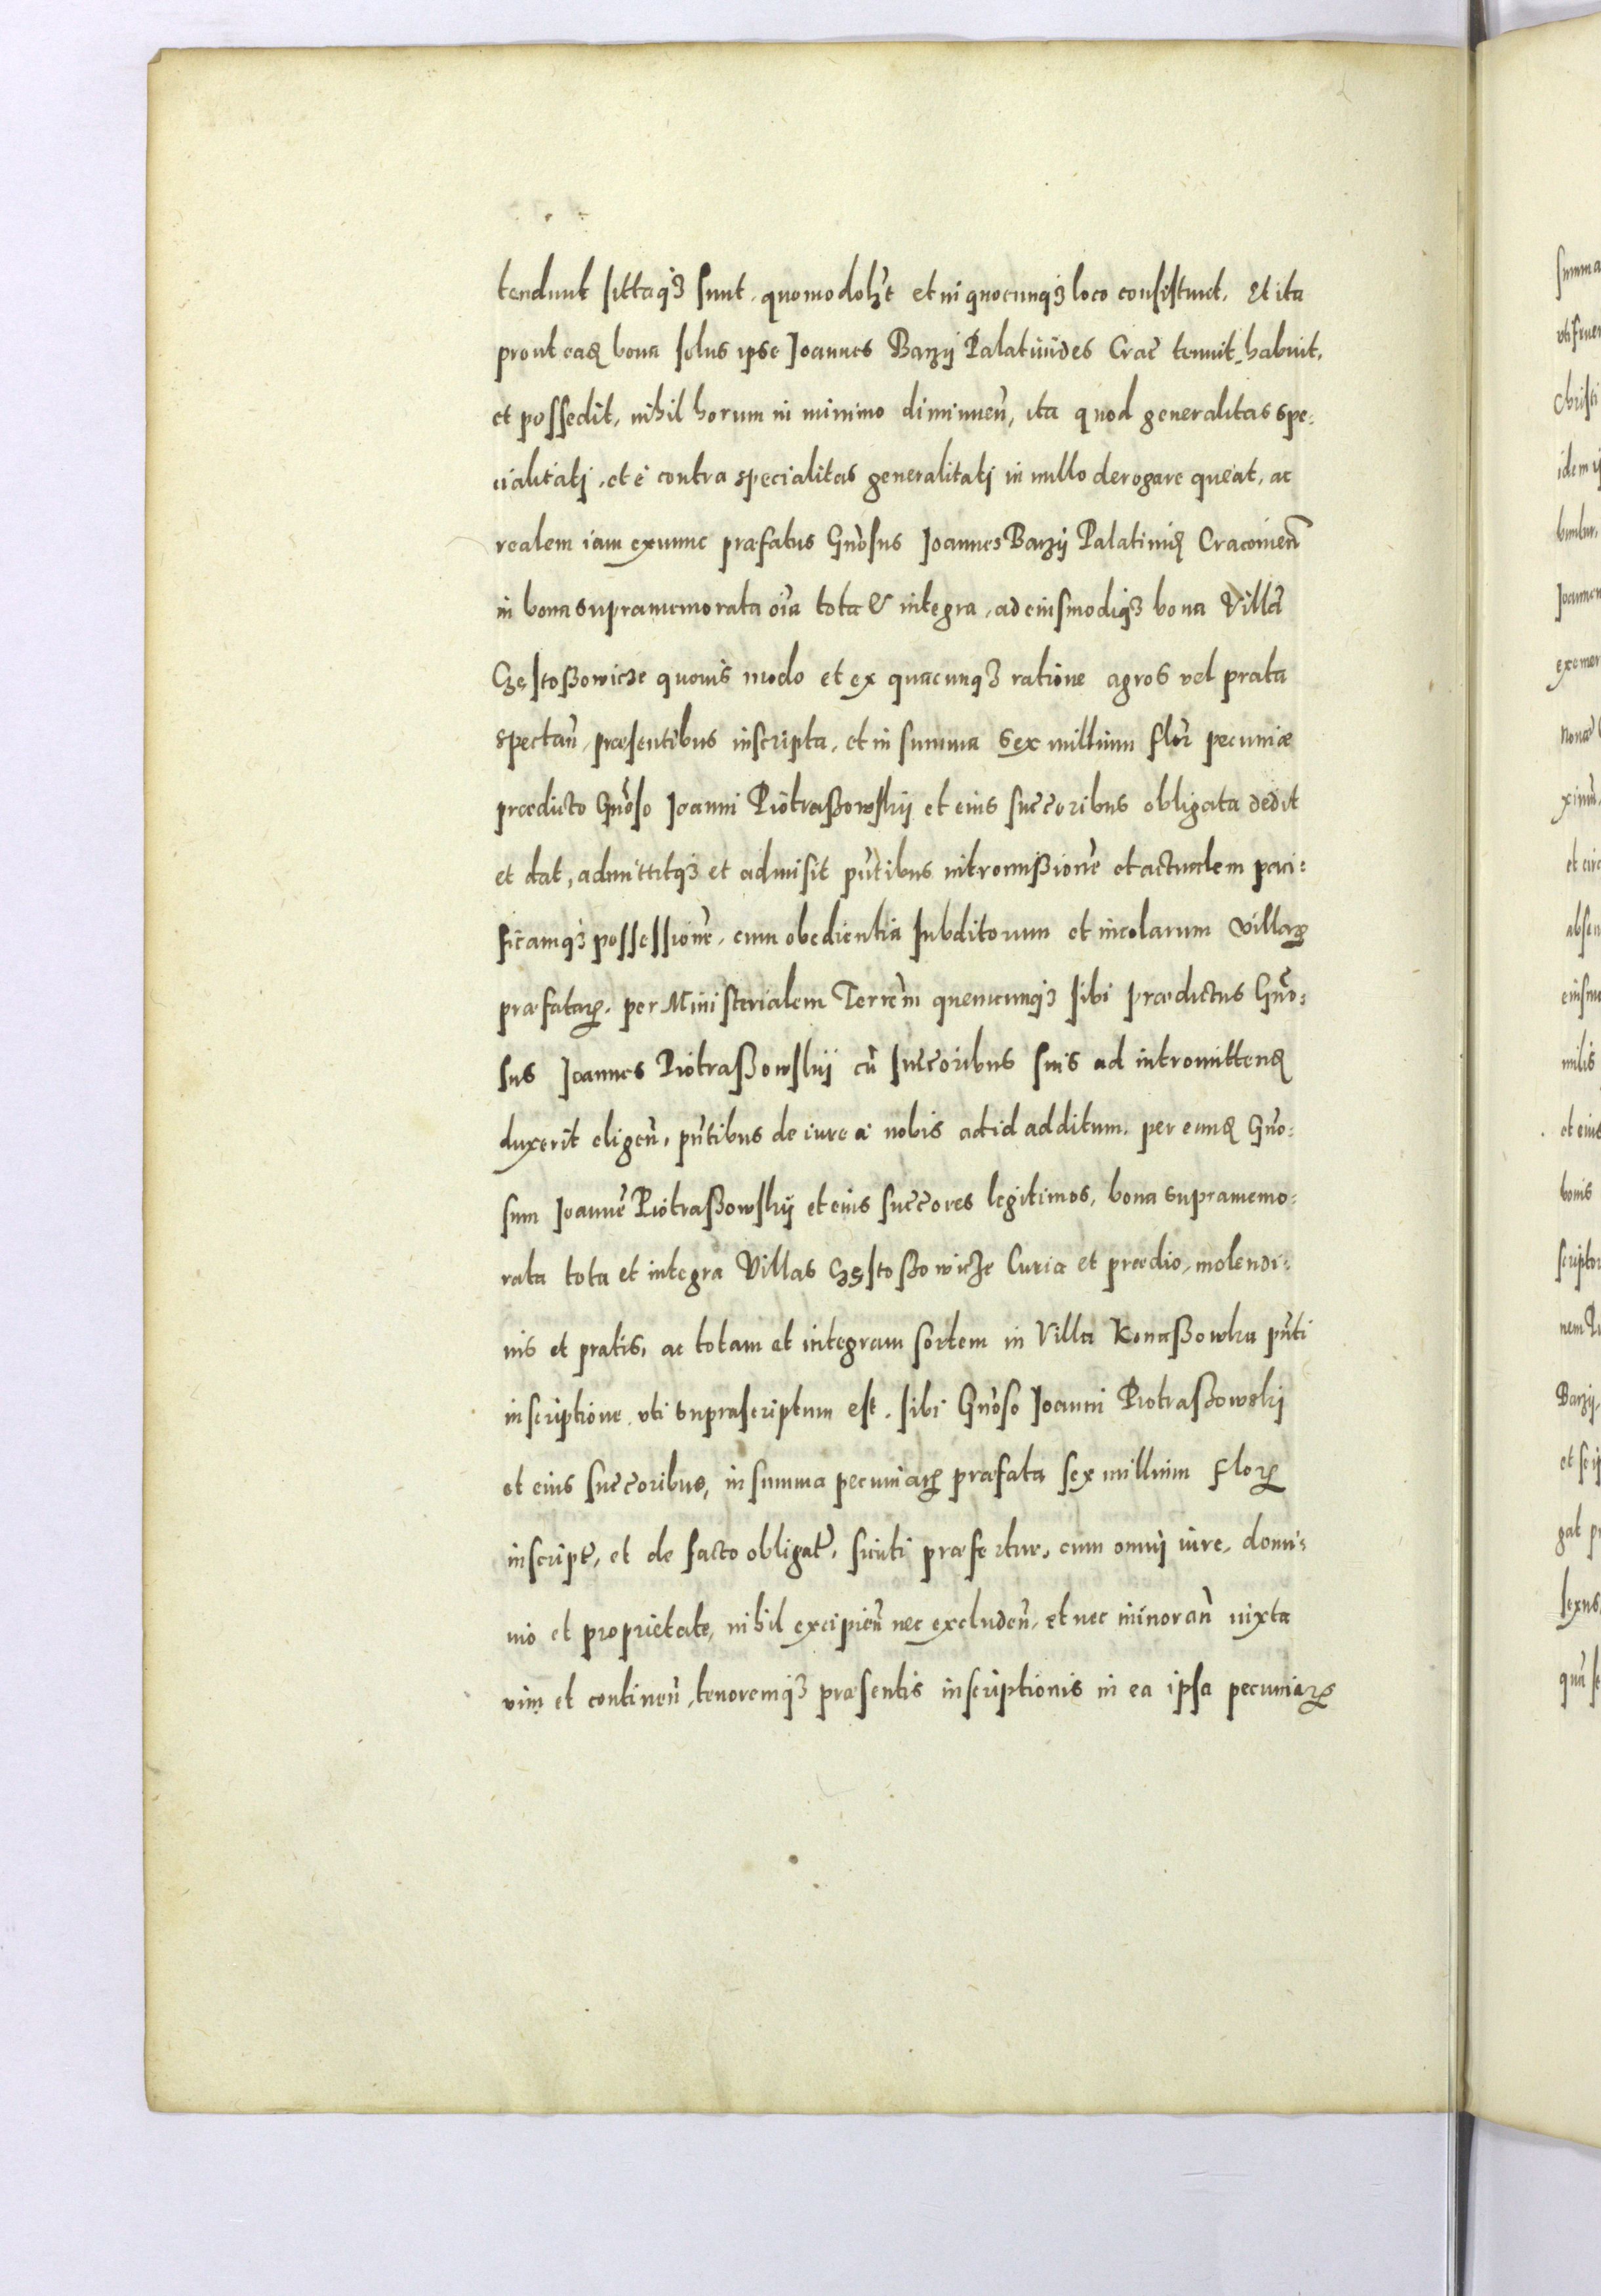 tendunt sittaq₃ sunt, quomodolꝫt et in quocunq₃ loco consistunt. Et ita
prout eadꝫ bona solus ipse Joannes Barzÿ Palatinides Crac̄ tenuit, habuit,
et possedit, nihil horum in minimo diminueñ, ita quod generalitas spe:
cialitati, et è contra specialitas generalitati in nullo derogare queat, ac
realem iam exnunc præfatus Gñosus Joannes Barzÿ Palatinidꝫ Cracouień
in bona supramemorata oĩa tota & integra, ad eiusmodiq₃ bona Villā
Częstoßowicze quouis modo et ex quacunq₃ ratione agros vel prata
spectañ, præsentibus inscripta, et in summa sex millium flor̃ pecuniæ
prædicto Gñoso Joanni Piotraßowskÿ et eius succ̄oribus obligata dedit
et dat, admittitq₃ et admisit pñtibus intromißionē et actualem paci:
ficamq₃ possessionē, cum obedientia subditorum et incolarum Villaꝝ
præfataꝝ, per Ministerialem Terrēm quemcunq₃ sibi prædictus Gño:
sus Joannes Piotraßowskÿ cũ succ̄oribus suis ad intromittendꝫ
duxerit eligeñ, pñtibus de iure à nobis ad id additum, per eundꝫ Gño:
sum Joannē Piotraßowskÿ et eius succ̄ores legitimos, bona supramemo:
rata tota et integra Villas Częstoßowicze Curia et prædio, molendi:
nis et pratis, ac totam et integram sortem in Villa Konaßowka pñti
inscriptione, vti suprascriptum est, sibi Gñoso Joanni Piotraßowski
et eius succ̄oribus, in summa pecuniaꝝ præfata sex millium Floꝝ
inscript̃, et de facto obligat̃, sicuti præfertur, cum omni iure, domi:
nio et proprietate, nihil excipieñ nec excludeñ, et nec minorañ iuxta
vim et contineñ, tenoremq₃ præsentis inscriptionis in ea ipsa pecuniaꝝ